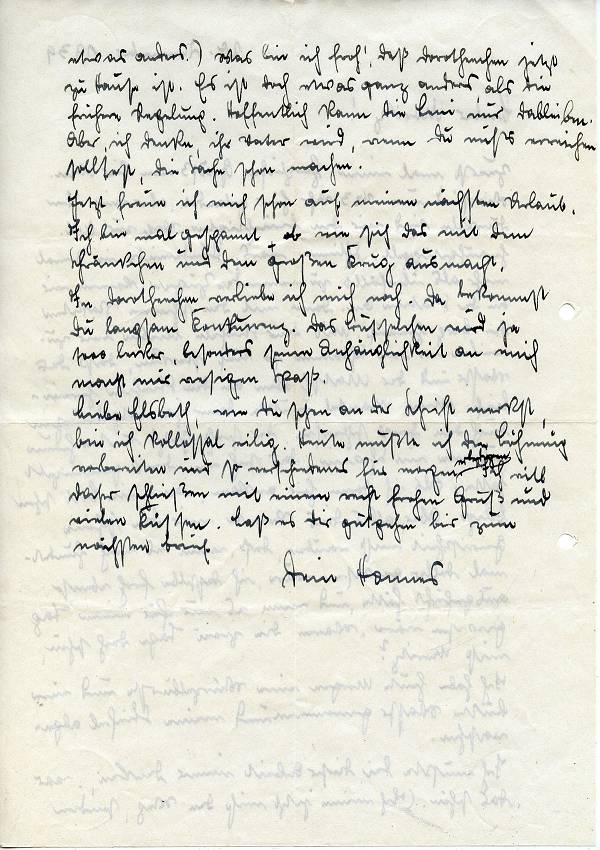 etwas anders.) Was bin ich froh, daß Dorothechen jetzt
zu Hause ist. Es ist doch etwas ganz anders als die
frühere Regelung. Hoffentlich kann die Leni nur dableiben.
Aber, ich denke, ihr Vater wird, wenn Du nichts erreichen
solltest, die Sache schon machen.
Jetzt freue ich mich schon auf meinen nächsten Urlaub.
Ich bin mal gespannt wie sich das mit dem
Schränkchen und dem großen Krug ausmacht.
In Dorothechen verliebe ich mich noch. Da bekommst
Du langsam Konkurrenz. Das wird ja
lecker, besonders seine Anhänglichkeit an mich
macht mir riesigen Spaß.
Liebe Elsbeth, wie Du schon an der Schrift merkst,
bin ich kollossal eilig. Heute mußte ich die Löhnung
vorbereiten und so verschiedenes für morgen erledigen. Ich will
daher schließen mit einem recht frohen Gruß und
vielen Küssen. Laß es Dir gutgehen bis zum
nächsten Brief.
Dein Hannes